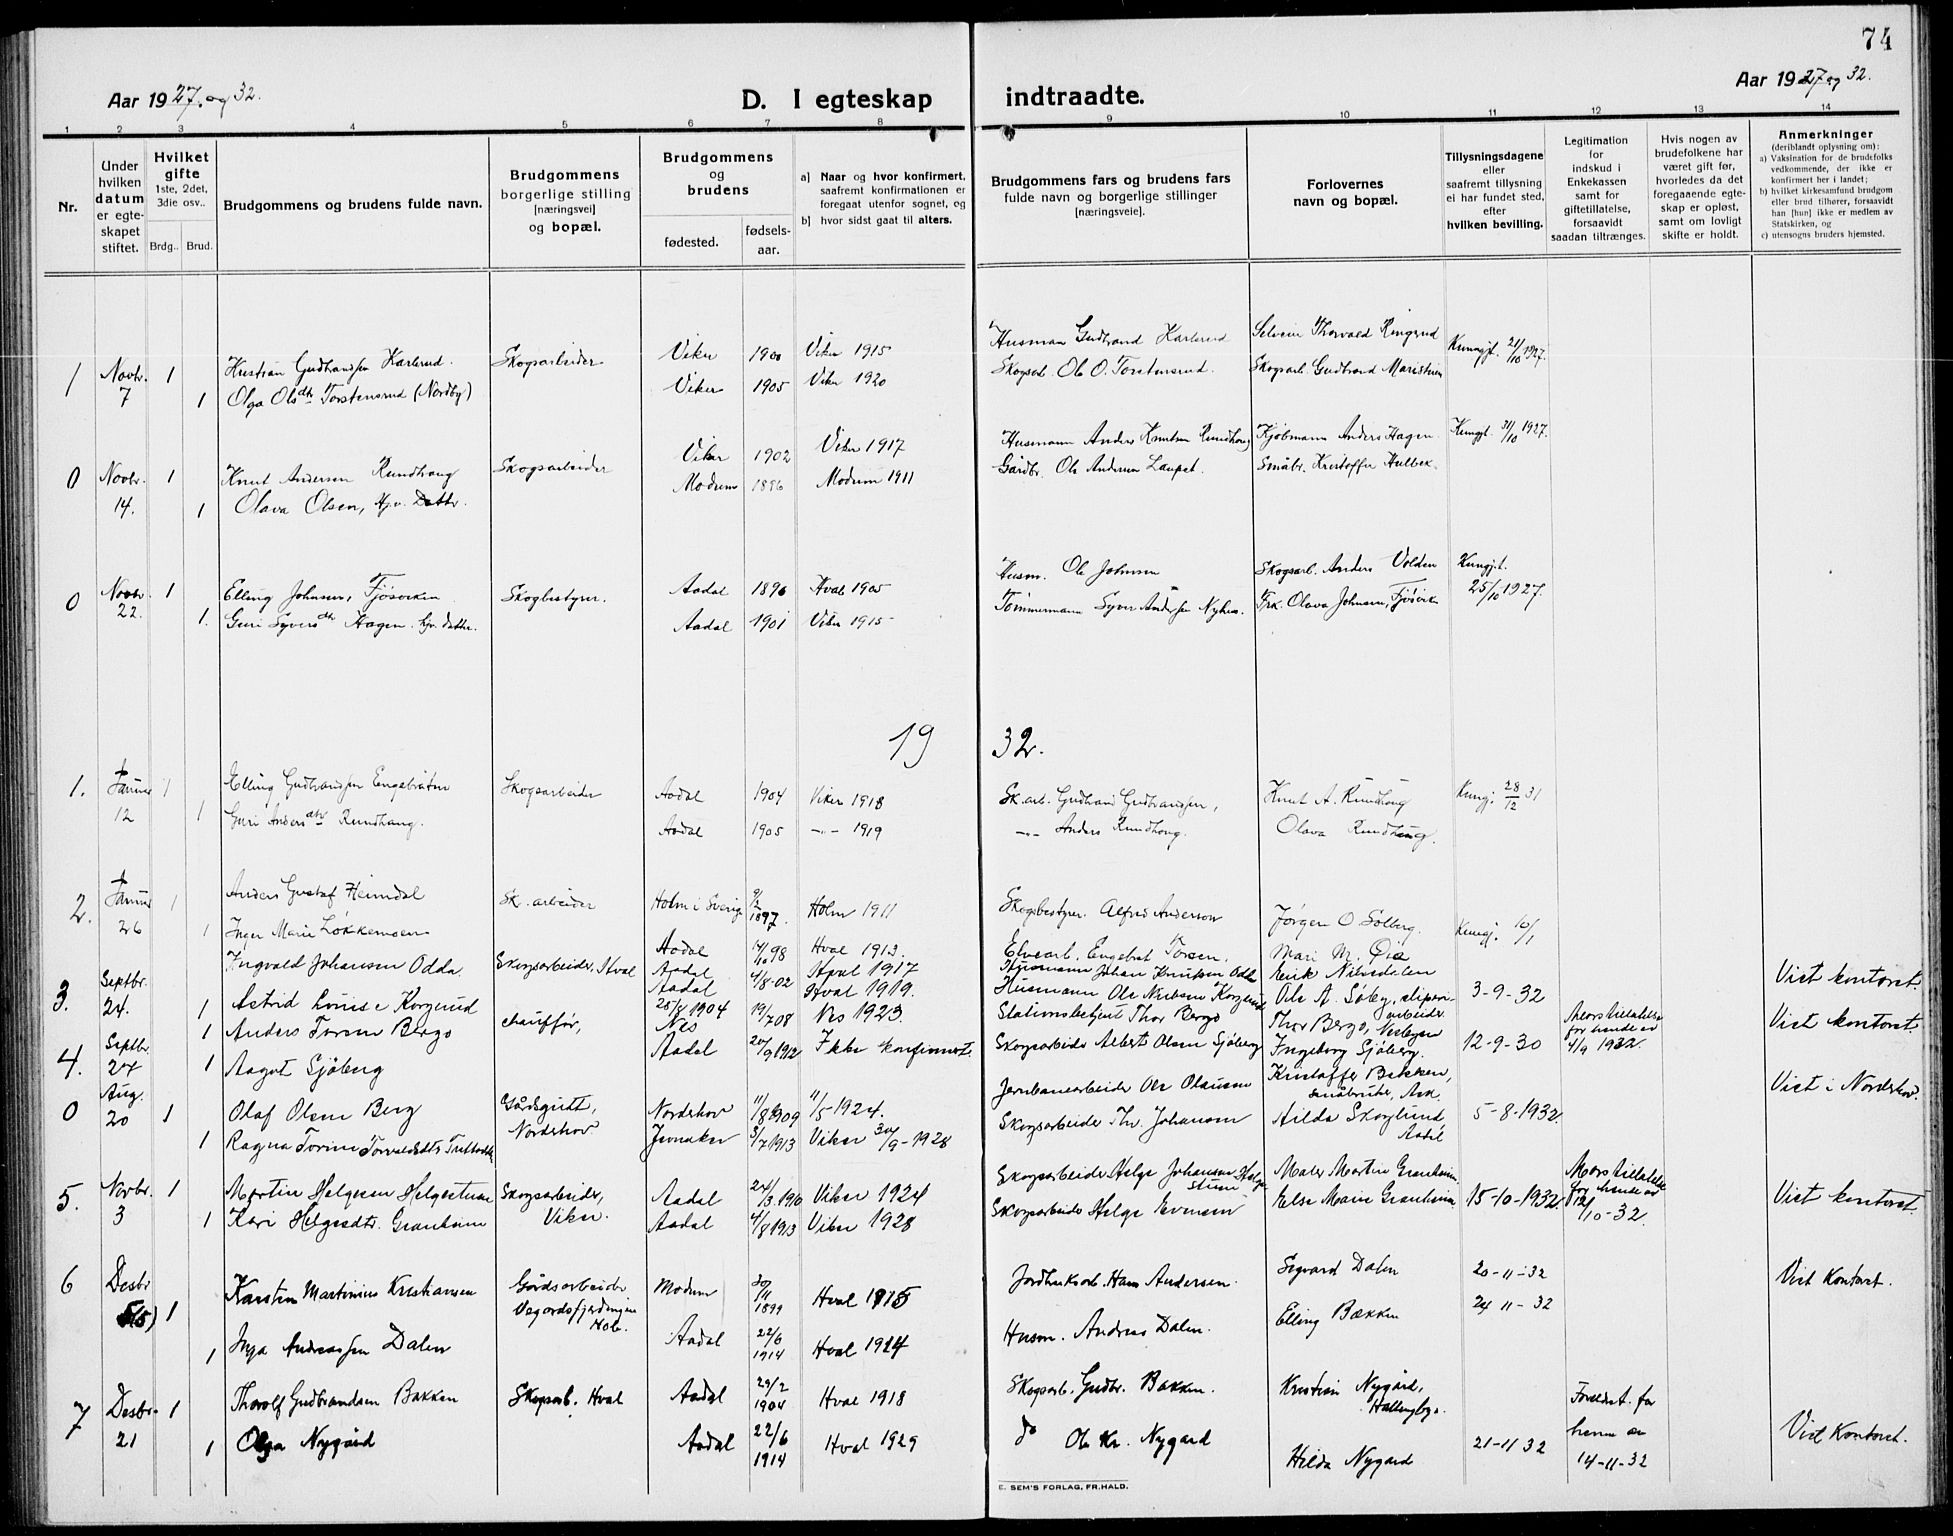 74
Aar 1927. og 32.
D. I egteskap indtraadte.
Aar 1927 og 32.
1 2 3 4 5 6 7 8 9 10 11 12 13 14
Nr.
Under hvilken datum er egte-skapet stiftet.
Hvilket gifte
1ste, 2det, 3die osv..
Brdg.. Brud.
Brudgommens og brudens fulde navn.
Brudgommens borgerlige stilling [næringsvei] og bopæl.
Brudgommens og brudens
fødested. fødsels-aar.
a) Naar og hvor konfirmert, saafremt konfirmationen er foregaat utenfor sognet, og
b) hvor sidst gaat til alters.
Brudgommens fars og brudens fars fulde navn og borgerlige stillinger [næringsveie].
Forlovernes navn og bopæl.
Tillysningsdagene eller saafremt tillysning ei har fundet sted, efter hvilken bevilling.
Legitimation for indskud i Enkekassen samt for giftetillatelse, forsaavidt saadan tiltrænges.
Hvis nogen av brudefolkene har været gift før, hvorledes da det foregaaende egte-skap er opløst, samt om lovligt skifte er holdt.
Anmerkninger (deriblandt oplysning om):
a) Vaksination for de brudefolks vedkommende, der ikke er konfirmert her i landet;
b) hvilket kirkesamfund brudgom eller brud tilhører, forsaavidt han [hun] ikke er medlem av Statskirken, og
c) utensogns bruders hjemsted.
1 Novbr. 7 1 Kristian Gudbrandsen Karlerud. Skogsarbeider Viker 1900 Viker 1915 Husman Gudbrand Karlerud Selveier Thorvald Ringerud Kunngjt. 21/10 1927.
1 Olga Olsdtr Torstensrud (Nordby) Viker 1905 Viker 1920 Skogsarb. Ole O. Torstensrud. Skogsarb. Gudbrand
0 Novbr. 14. 1 Knut Andersen Rundhaug Skogsarbeider Viker 1902 Viker 1917 Husmann Anders Knutsen Rundhaug Kjøbmann Anders Hagen Kungjt. 31/10 1927.
1 Olava Olsen, Hjv. Datter. Modum 1896 Modum 1911 Gårdbr. Ole Andersen Laupet. Småbr. Kristoffer
0 Novbr. 22. 1 Elling Johnsen, Fjøsviken Skogbestyrer. Aadal 1896 Hval 1905 Husm. Ole Johnsen Skogsarb. Anders Volden Kungjt. 25/10 1927.
1. Guri Syversdtr Hagen. hjv. datter. Aadal 1901 Viker 1915 Tømmermann Syver Andersen Nyhus. Frk. Olava Johnsen, Fjøsviken
1932.
1. Januar 12 1 Elling Gudbrandsen Engebråten Skogsarbeider Aadal 1904 Viker 1918 Sk.arb. Gudbrand Gudbrandsen, Knut A. Rundhaug Kungj. 28/12 31
1 Guri Andersdtr Rundhaug. Aadal 1905 -"- 1919 -"- Anders Rundhaug. Olava Rundhaug.
2. Januar 26 1 Anders Gustaf Heimdal Sk. arbeider Holm i Sverige 9/2 1897. Holm 1911 Skogsbestyrer. Alfred Anderson Jørgen O Sølberg. Kungj. 10/1
1 Inger Marie Løkkemoen Aadal 14/10 98 Hval 1913. Elvearb. Engebret Torsen. Mari M. Øia
3. Septbr. 24. Ingvald Johansen Odda. Skogsarbeider, Hval Aadal 4/8-02 Hval 1917 Husmann Johan Knutsen Odda Erik Nilsedalen 3-9-32 Viet kontoret.
1 Astrid Louise Korgerud Aadal 25/8 1904 Hval 1919. Husmann Ole Nielsen Korgerud Ole A. Søby, sliperi-arbeider
4. Septbr. 24 1 Anders Toren Bergo chauffør, Nes 19/7 08 Nes 1923. Stationsbetjent Thor Bergo Thor Bergo, Nesbyen 12-9-30 Mors tilladelse for hende av 4/9 1932. Viet kontoret
1 Aagot Sjøberg Aadal 20/9 1912 Ikke konfirmert. Skogsarbeider Albert Olsen Sjøberg Ingeborg Sjøberg.
0 Aug. 20 1 Olaf Olsen Berg Gårdsgutt, Norderhov Norderhov 11/8 1909 11/5-1924. Jernbanearbeider Ole Olausen Kristoffer Bakken, småbruker, Ask. 5-8-1932. Viet i Norderhov.
1 Ragna Torine Torvaldsdtr Jevnaker 3/7 1913 Viker 30/9-1928 Skogsarbeider Th. Johansen Hilda Skoglund, Aadal
5. Novbr. 3 1 Martin Helgesen Helgestuen Skogsarbeider, Viker. Aadal 24/3 1910 Viker 1924 Skogsarbeider Helge Johansen Helgestuen Maler Martin Granheim. 15-10-1932. Mors tilladelse for hende av 12/10-32. Viet kontoret.
1 Kari Helgesdtr. Granheim Aadal 4/8 1913 Viker 1928 Skogsarbeider Helge Evensen Else Marie Granheim
6 Desbr 5(5) 1 Karsten Martinius Kristiansen Gårdsarbeider Vegårdsfjerdingen Hole. Modum 30/11 1899 Hval 1915 Jordbruksarb. Hans Andersen. Sigvard Dalen 20-11-32 Viet Kontoret.
1 Inga Andreassen Dalen Aadal 22/6 1914 Hval 1924 Husm. Andreas Dalen. Elling Bækken 24 11-32
7 Desbr. 21 1 Thorolf Gudbrandsen Bakken Skogsarb. Hval Aadal 29/2 1904 Hval 1918 Skogsarb. Gudbr. Bakken. Kristian Nygård, Hallingby. 21-11 32 Foreldret. for henne av 14-11-32 Viet Kontoret.
1 Olga Nygård Aadal 22/6 1914 Hval 1929 do Ole Kr. Nygård Hilda Nygård
E. SEM'S FORLAG, FR.HALD.